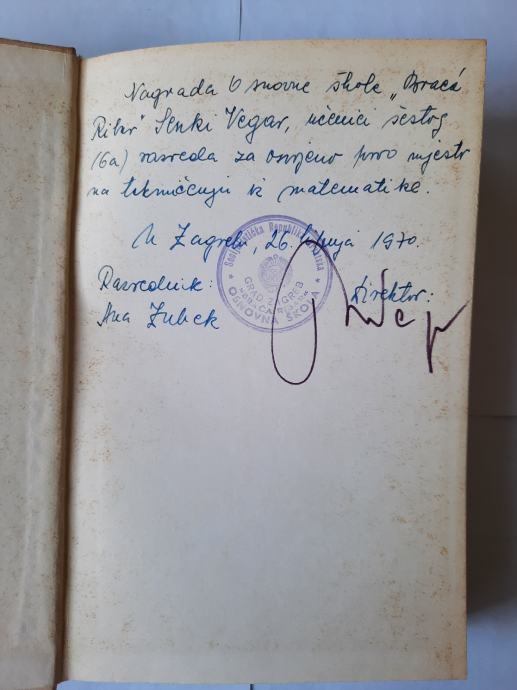 Nagrada Osnovne škole „Braća
Ribar" Senki Vegar, učenici šestog
(6a) razreda za osvojeno prvo mjesto
na takmičenju iz matematike.
U Zagrebu, 26. lipnja 1970.
Razrednik:
Direktor:
Ana Zubek
Socijalistička Republika Hrvatska
GRAD ZAGREB
OSNOVNA ŠKOLA